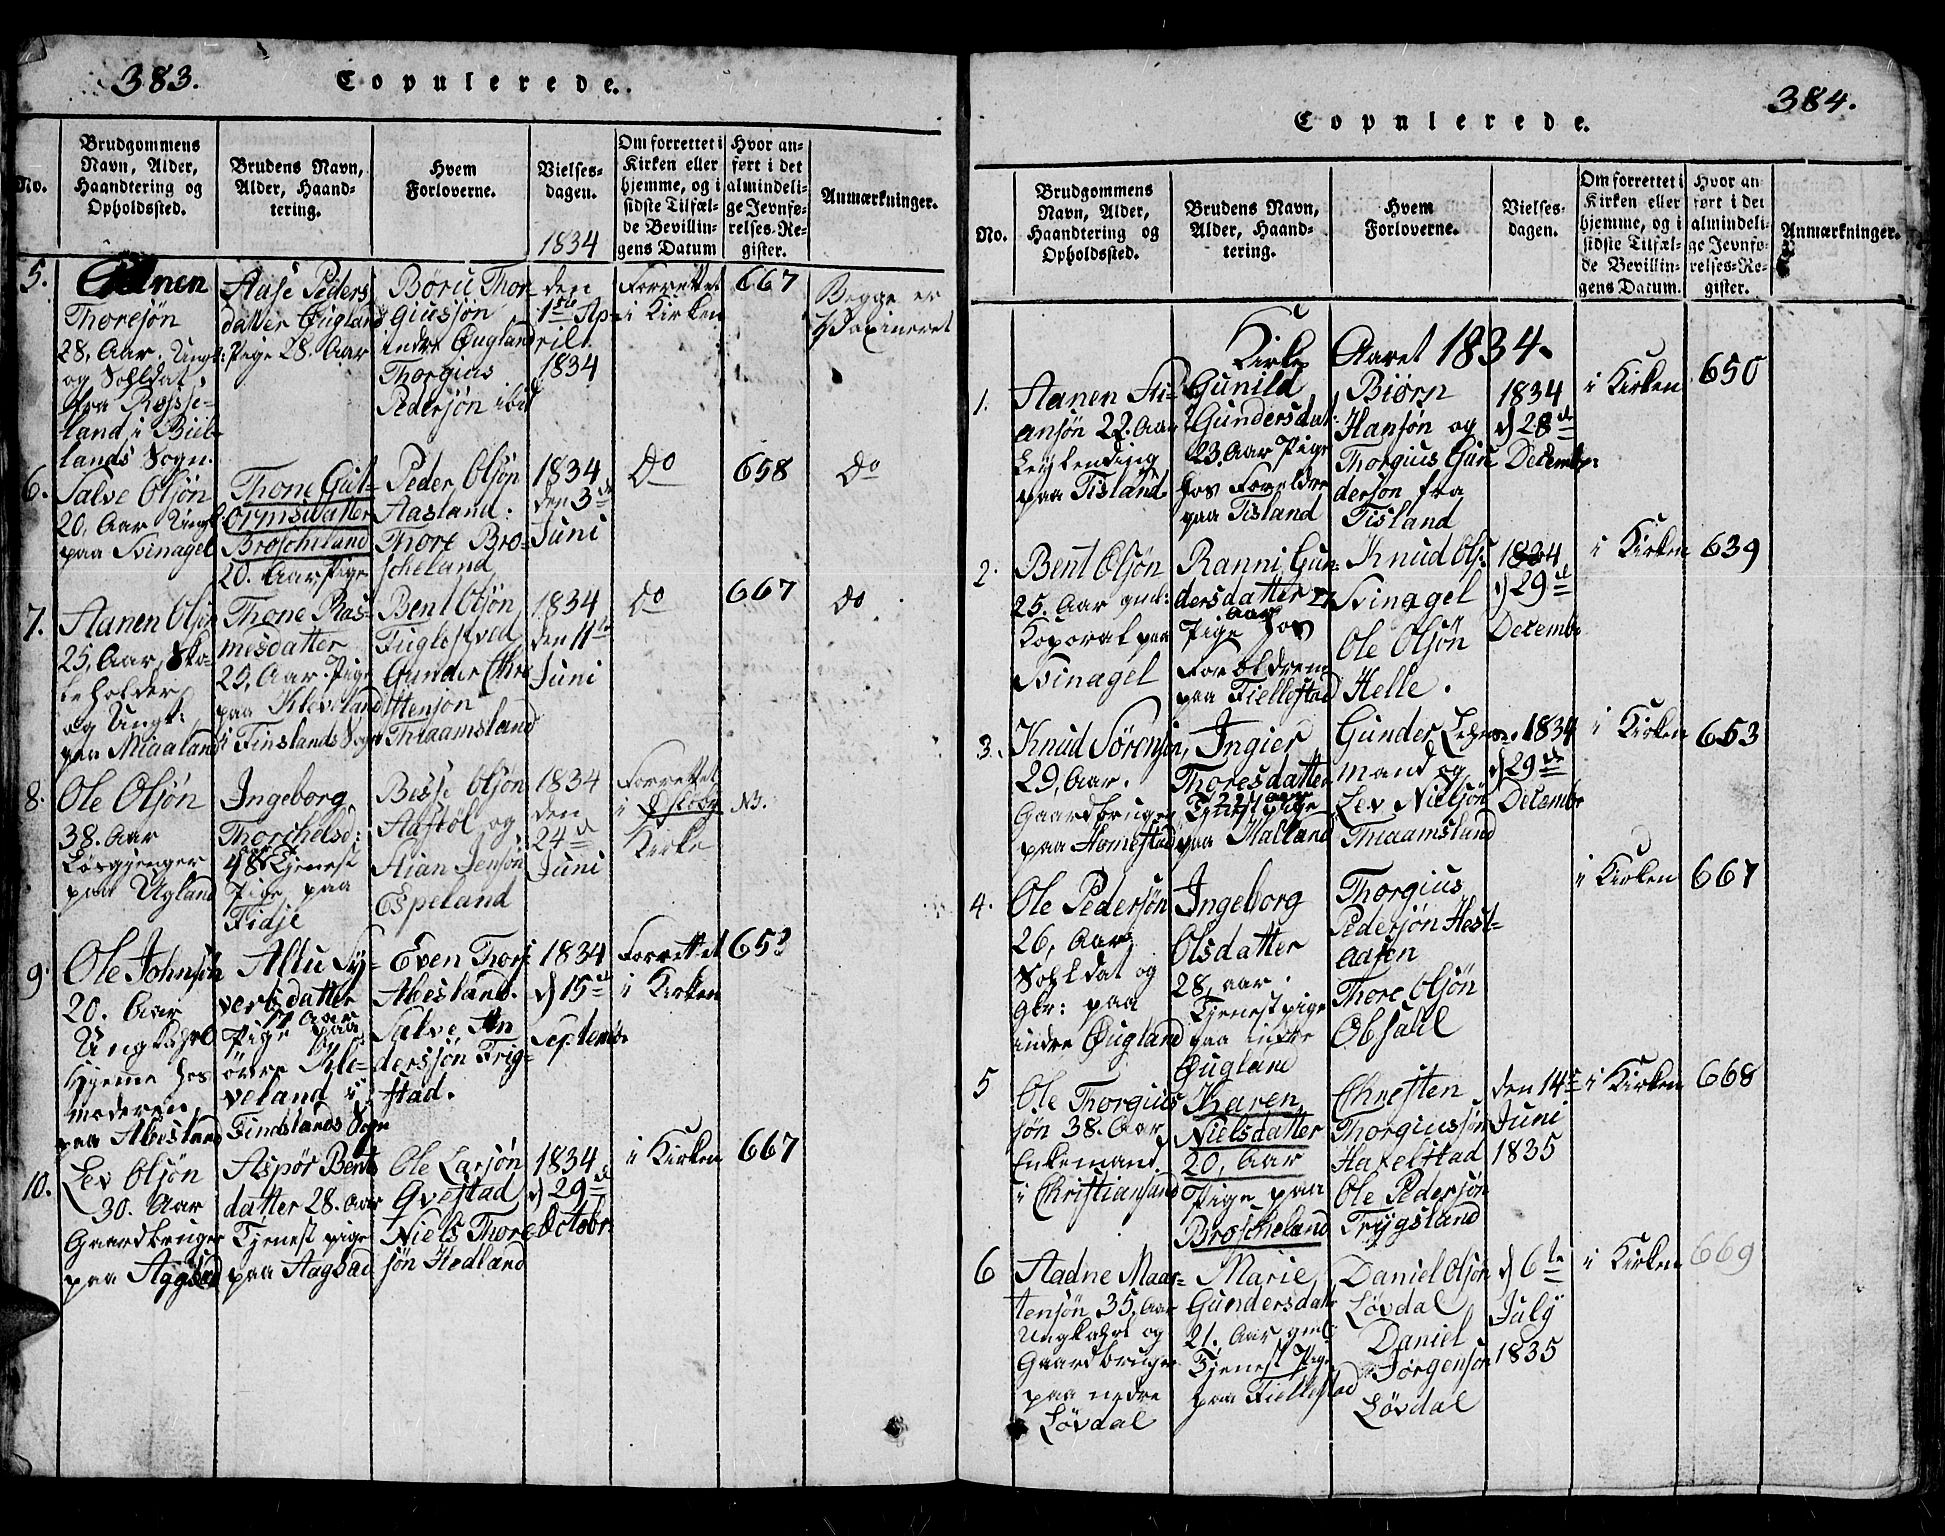 383.
Copulerede.
No.
Brudgommens
Navn, Alder,
Haandtering og
Opholdssted.
Brudens Navn,
Alder, Haand-
tering.
Hvem
Forloverne.
Vielses-
dagen.
1834
Om forrettet i
Kirken eller
hjemme, og i
sidste Tilfæl-
de Bevillin-
gens Datum
Hvor an-
ført i det
almindeli-
ge Jevnfø-
relses-Re-
gister.
Anmærkninger.
5.
Aanen
Thoresøn
28, Aar. Ungk:
og Soldat,
fra Rosse-
land i Biel-
lands Sogn.
Aase Peders
datter Øugland
Pige 28. Aar
Børu Thor-
giussøn
indre Øugland
Thorgius
Pedersøn ibid
den
1ste Ap-
ril.
1834
Forrettet
i Kirken
667
Begge er
Vaxineret
6.
Salve Olsøn
20, Aar Ungk
paa Svinagel
Thone Gut-
ormsdatter
Broscheland
20. Aar Pige
Peder Olsøn
Aasland.
Thore Bro-
scheland
1834
den 3de
Juni
Do
658
Do
7.
Aanen Olsøn
25, Aar, Sko-
leholder
og Ungk:
paa Miaaland
Thone Ras-
mesdatter
25, Aar Pige
paa Kleveland
i Finslands Sogn
Bent Olsøn
Fuglestved
Gunder Chre
ttensøn
Thiaamsland
1834
den 11te
Juni
Do
667
Do
8.
Ole Olsøn
38. Aar
Løsgjenger
paa Ugland
Ingeborg
Thorchelsd:
48 Aar Tjenest
Pige paa
Fidje
Besse Olsøn
Aastøl og
Stian Jensøn
Espeland
1834
den
24de
Juni
Forrettet
i Øsleby
Kirke
N3.
9.
Ole Johnsøn
20. Aar
Ungkahrl
hjeme hos
moderen
paa Abesland
Allu Sy-
vertsdatter
17 Aar
Pige paa
øvre Kle-
veland i
Findslands Sogn
Even Thors
Abesland.
Salve An
derssøn Trig-
stad.
1834
d) 15de
Septembr
Forrettet
i Kirken
653
10.
Lev Olsøn
30. Aar
Gaardbruger
paa Aggsad
Aspør Bents
datter 28. Aar
Tjenest pige
paa Aagsad
Ole Larsøn
Qvestad
Niels Thore
søn Hedland
1834
d) 29de
Octobr.
i Kirken
667
384.
Copulerede.
No.
Brudgommens
Navn, Alder,
Haandtering og
Opholdssted.
Brudens Navn,
Alder, Haand-
tering.
Hvem
Forloverne.
Vielses-
dagen.
Om forrettet i
Kirken eller
hjemme, og i
sidste Tilfæl-
de Bevillin-
gens Datum.
Hvor an-
ført i det
almindeli-
ge Jevnfø-
relses-Re-
gister.
Anmærkninger.
Kirke Aaret 1834.
1.
Aanen Sti-
ansøn 22. Aar
Leylending
paa Tisland
Gunild
Gundersdat:
23. Aar Pige
hos Foreldre
paa Tisland
Biørn
Hansøn og
Thorgius Gun
dersøn fra
Tisland
1834
d) 28de
Decembr:
i Kirken
650
2.
Bent Olsøn
25. Aar gml:
Koporal paa
Svinagel
Ranni Gun-
dersdatter 27
Aar
Pige hos
Forældrene
paa Fiellestad
Knud Ols:
Svinagel
Ole Olsøn
Helle.
1834
d) 29de
Decembr
i Kirken
639
3.
Knud Sørensøn
29, Aar.
Gaardbruger
paa Homestad
Ingier
Thoresdatter
22 Aar
Tjenest Pige
paa Hålland
Gunder Lehns-
mand og
Lev Nielsøn
Thiaamsland
1834
d) 29de
Decembr
i Kirken
653
4.
Ole Pedersøn
26, Aar,
Soldat og
Gbr: paa
indre Øugland
Ingeborg
Olsdatter
28, aar.
Tjenestpige
paa indre
Øugland
Thorgius
Pedersøn Hest-
aasen
Thore Olsøn
Obsahl
i Kirken
667
5
Ole Thorgius
søn 38. Aar
Enkemand.
i Christiansand
Karen
Nielsdatter
20, Aar
Pige paa
Broscheland
Chresten
Thorgiussøn
Haselstad
Ole Pedersøn
Trygsland
den 14de
Juni
1835
i Kirken
668
6
Aadne Maar-
tensøn 35, Aar
Ungkahrl og
Gaardbruger
paa nedre
Løvdal
Marie
Gundersdatr
21. Aar gml:
Tjenest Pige
paa Fiellestad
Daniel Olsøn
Løvdal
Daniel
Jørgensøn
Løvdal
d) 6te
July
1835
i Kirken
669